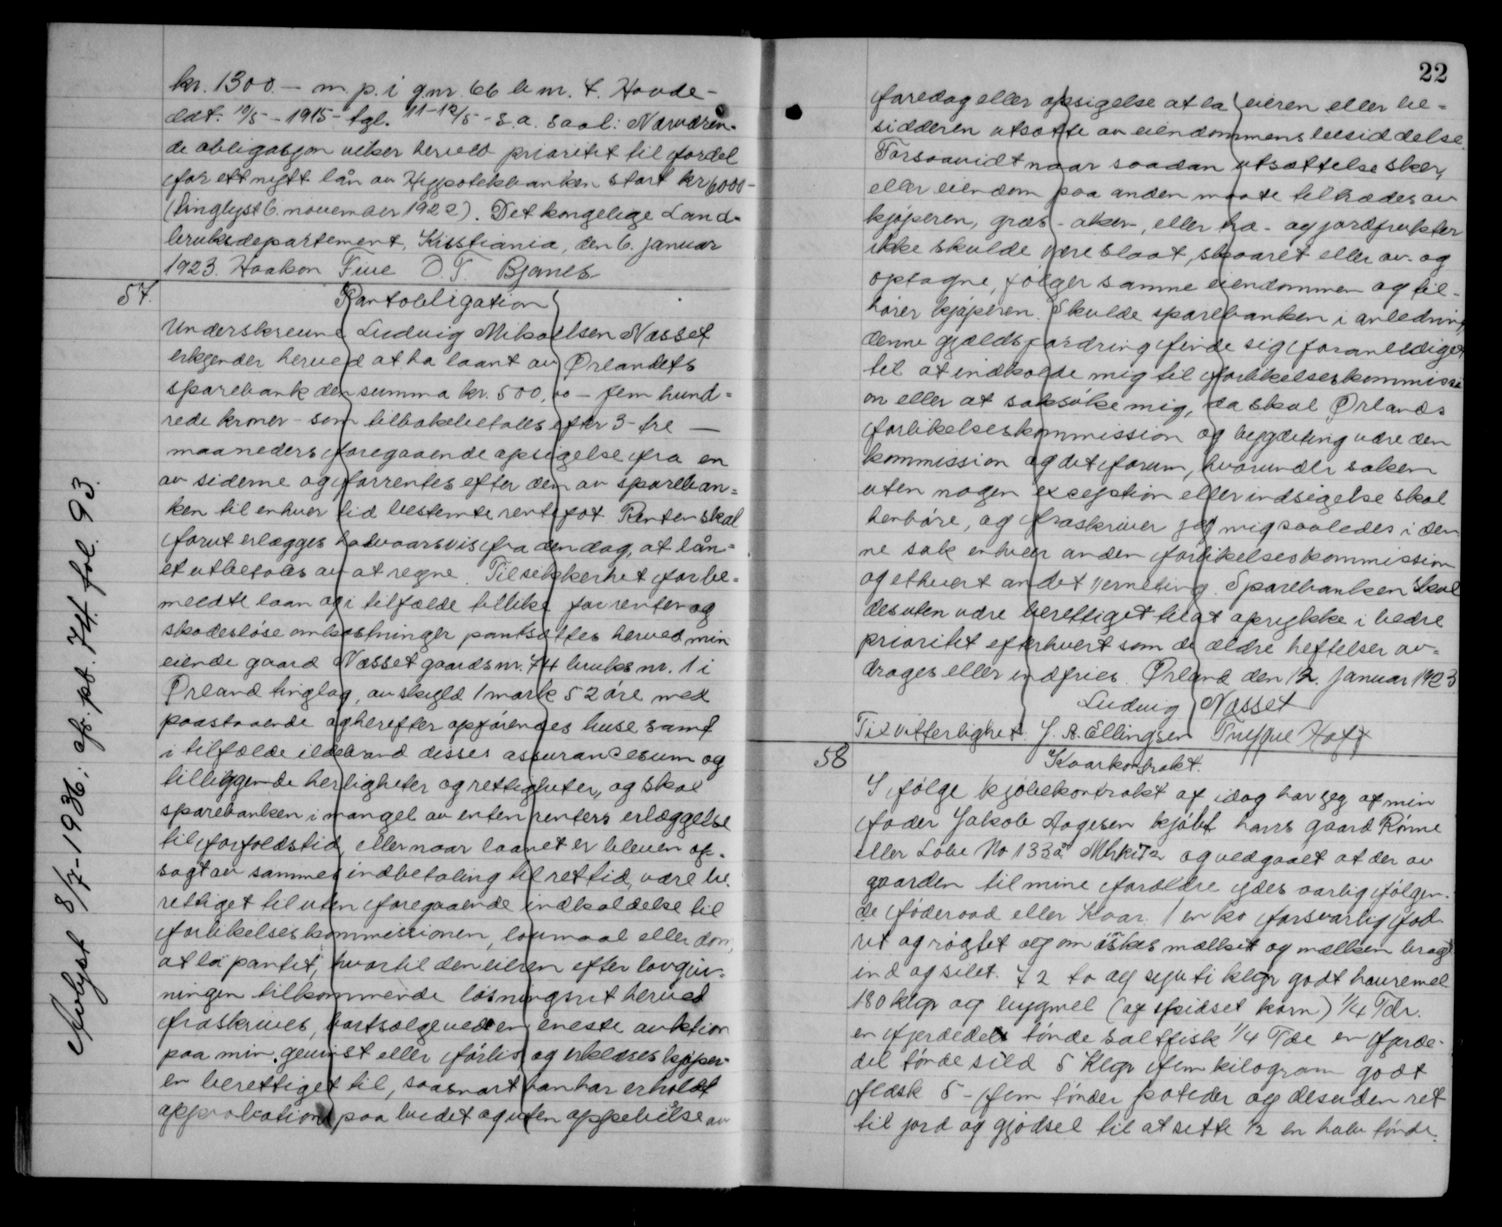 kr. 1300.- m. p. i gnr. 66 b nr. 4. Hovde-
ddt. 10/5 - 1915 - tgl. 11-12/5 - s.a. saal: Nærværen-
de obligasjon viker herved prioritet til fordel
for ett nytt lån av Hypotekbanken stort kr 6000-
(tinglyst 6. november 1922). Det kongelige Land-
bruksdepartement, Kristiania, den 6. januar
1923. Haakon Five O. T. Bjanes
57. Pantobligation
Underskrevne Ludvig Mikaelsen Næsset
erkjender herved at ha laant av Ørlandets
sparebank den summa kr. 500,00 - fem hund=
rede kroner - som tilbakebetales efter 3 - tre —
maaneders foregaaende opsigelse fra en
av siderne og forrentes efter den av spareban=
ken til enhver tid bestemte rentefot. Renten skal
forut erlægges halvaarsvis fra den dag, at lån=
et utbetales av at regne. Til sikkerhet for be=
meldte laan og i tilfælde tillike for renter og
skadesløse omkostninger pantsættes herved min
eiende gaard Næsset gaardsnr. 74 bruksnr. 1 i
Ørland tinglag, av skyld 1 mark 52 øre med
paastaaende og herefter opførendes huse samt
i tilfælde ildebrand disses assurancesum og
tilliggende herligheter og rettigheter, og skal
sparebanken i mangel av enten renters erlæggelse
til forfaldstid eller naar laanet er bleven op-
sagt av sammes indbetaling til rettid, være be-
rettiget til uten foregaaende indkaldelse til
forlikelseskommissionen, lovmaal eller dom,
at la pantet, hvortil den eieren efter lovgiv-
ningen tilkommende løsningsret herved
fraskrives, bortsælge ved en eneste auktion
paa min gevinst eller forlis og erklæres kjøper-
en berettiget til, saasnart han har erholdt
approbation paa budet og uten appebielse av
Avlyst 8/7-1936; afs. pb. 74. fol. 93.
22
faredag eller opsigelse at la eieren eller be-
sidderen utsætte av eiendommens besiddelse.
Forsaavidt naar saadan utsættelse sker,
eller eiendom paa anden maate tiltrædes av
kjøperen, græs - aker, eller træ - og jordfrukter
ikke skulde være slaat, skaaret eller av- og
optagne, følger samme eiendommen og til-
hører kjøperen. Skulde sparebanken i anledning
denne gjældsfordring finde sig foranlediget
til at indkalde mig til forlikelseskommissi
on eller at saksøke mig, da skal Ørlands
forlikelseskommission og bygdeting være den
kommission og det forum, hvorunder saken
uten nogen exception eller indsigelse skal
henhøre, og fraskriver jeg mig saaledes i den
ne sak enhver anden forlikelseskommission
og ethvert andet verneting. Sparebanken skal
desuten være berettiget til at oprykke i bedre
prioritet efterhvert som de ældre heftelser av-
drages eller indfries. Ørland den 12. januar 1923
Ludvig Næsset
Til vitterlighet: J. A. Ellingsen Tryggve Hoff
58 Kaarkontrakt.
I følge kjøbekontrakt af idag har jeg af min
fader Jakob Aagesen kjøbt hans gaard Rønne
eller Løbe No 133a og vedgaaet at der av
gaarden til mine forældre ydes aarlig følgen-
de føderaad eller Kaar. 1 en ko forsvarlig fod-
ret og røgtet og om ønskes mælket og mælken bragt
ind og silet. 72 to og sytti klgr godt havremel
180 klgr og bygmel (af spidset korn) 1/4 Tdr.
en fjerdedels tønde saltfisk 1/4 Tde en fjerde-
del tønde sild 5 Klgr fem kilogram godt
flæsk 5 - fem tønder poteder og desuden ret
til jord og gjødsel til at sette 1/2 en halv tønde.